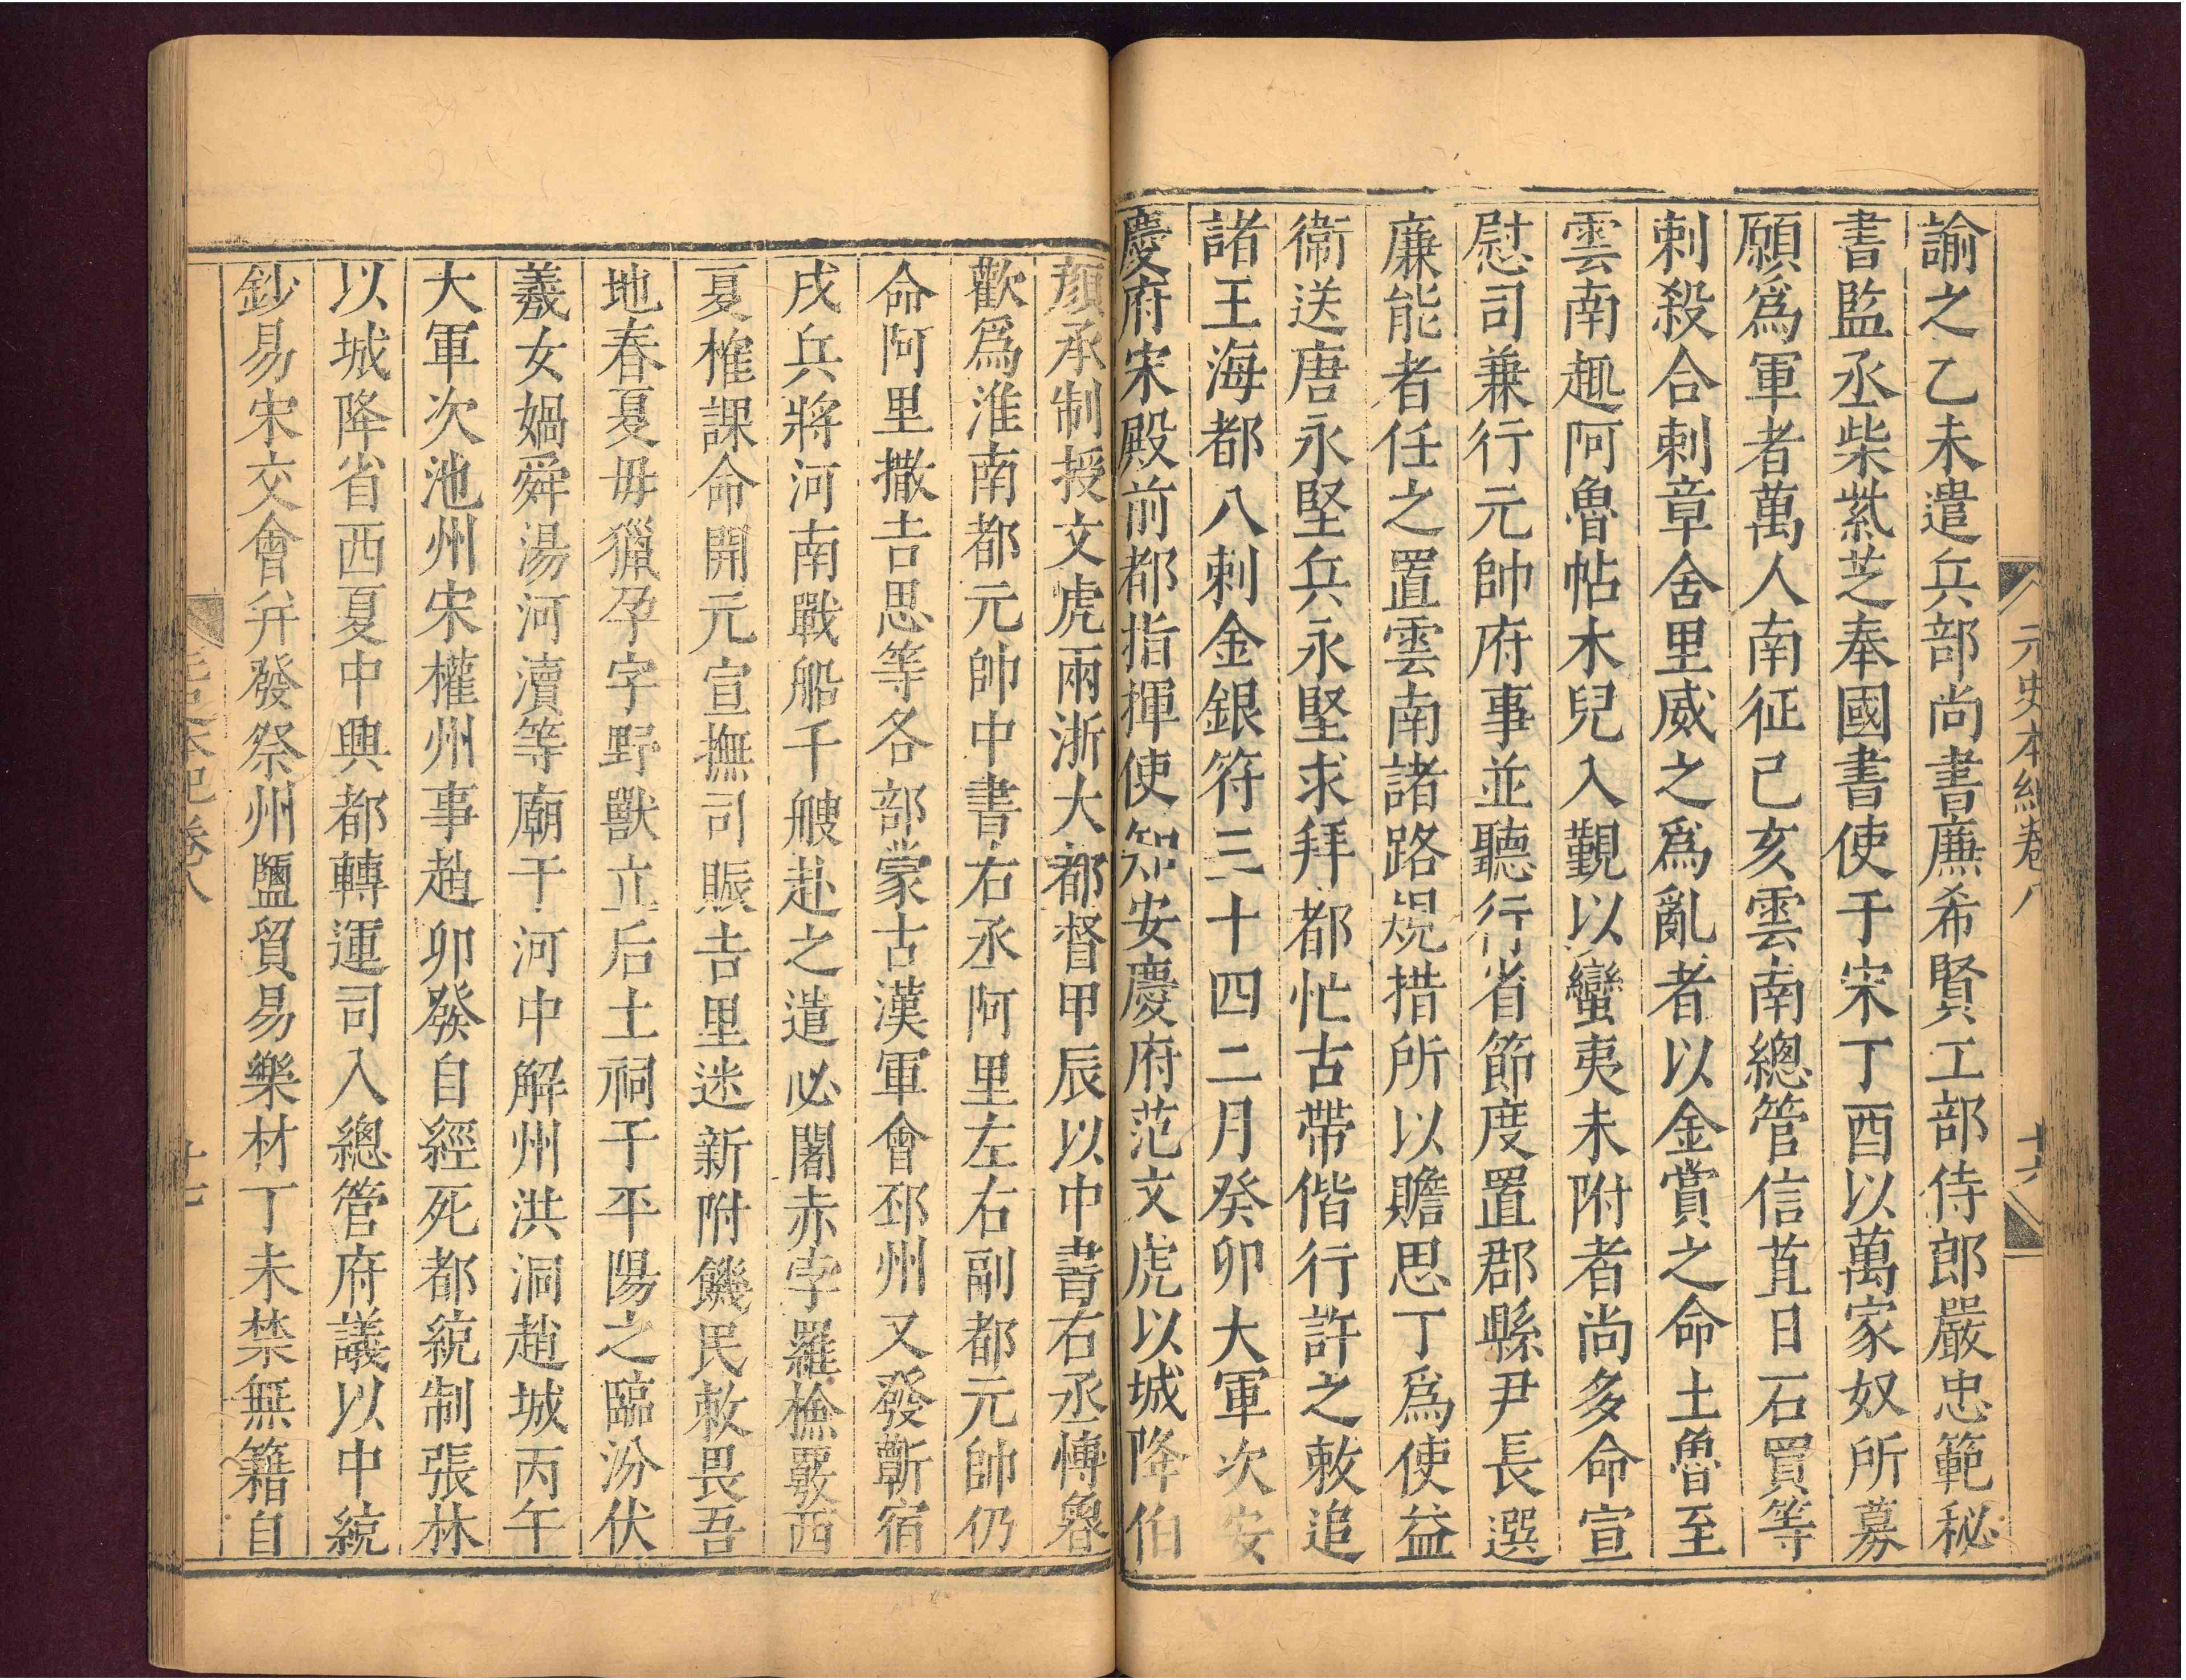 元史本紀卷八
十六
諭之乙未遣兵部尚書廉希賢工部侍郎嚴忠範秘
書監丞柴紫芝奉國書使于宋丁酉以萬家奴所募
願爲軍者萬人南征己亥雲南總管信苴日石買等
刺殺合剌章舍里威之爲亂者以金賞之命土魯至
雲南趣阿魯帖木兒入覲以蠻夷未附者尚多命宣
慰司兼行元帥府事並聽行省節度置郡縣尹長選
廉能者任之置雲南諸路規措所以贍思丁爲使益
衞送唐永堅兵永堅求拜都忙古帶偕行許之敕追
諸王海都八剌金銀符三十四二月癸卯大軍次安
慶府宋殿前都指揮使知安慶府范文虎以城降伯
顏承制授文虎兩浙大都督甲辰以中書右丞愽魯
歡爲淮南都元帥中書右丞阿里左右副都元帥仍
命阿里撒吉思等各部蒙古漢軍會邳州又發蘄宿
戍兵將河南戰船千艘赴之遣必闍赤孛羅檢覈西
夏榷課命開元宣撫司賑吉里迷新附饑民敕畏吾
地春夏毋獵孕字野獸立后土祠于平陽之臨汾伏
羲女媧舜湯河瀆等廟于河中解州洪洞趙城丙午
大軍次池州宋權州事趙卯發自經死都統制張林
以城降省西夏中興都轉運司入總管府議以中統
鈔易宋交會幷發祭州鹽貿易藥材丁未禁無籍自
元史本紀卷八
十七